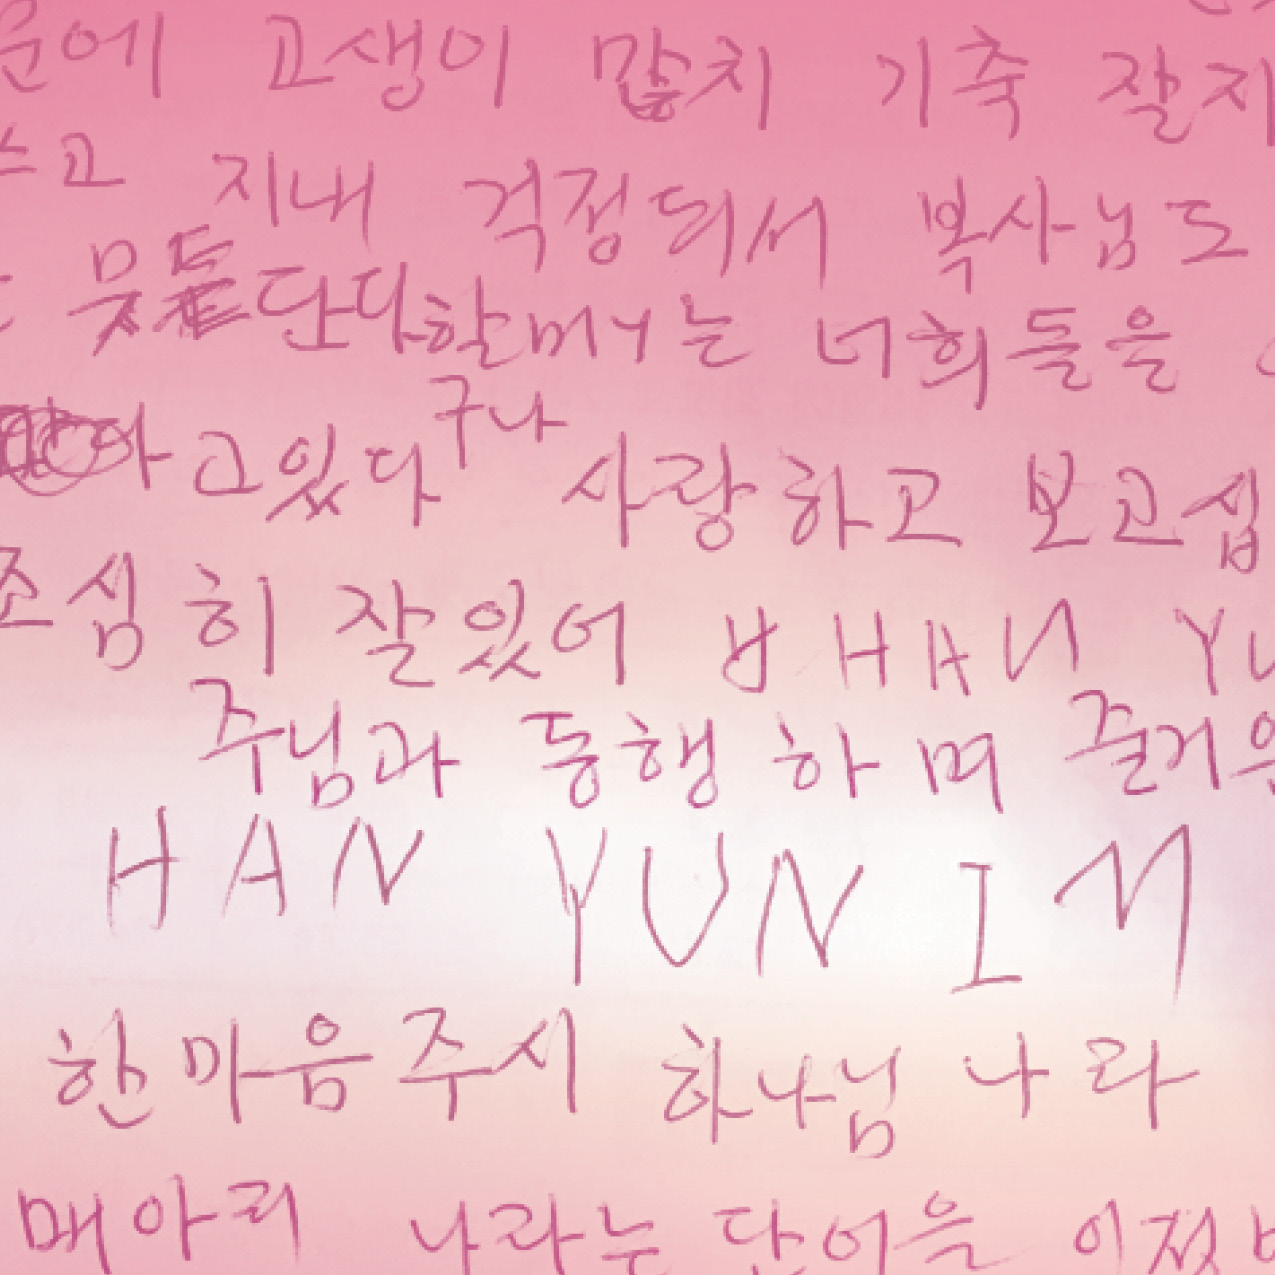 문에 고생이 많치 기축 잘지
스고 지내 걱정되서 복사님도
뭇 단다 할머y는 너희들을
아고있다구나 사랑하고 보고십
조심히 잘있어 HAN YU
주님과 동행하며 즐거운
HAN YUN IM
한마음주시 하나님 나라
매아리 나라는 단어을 이젔